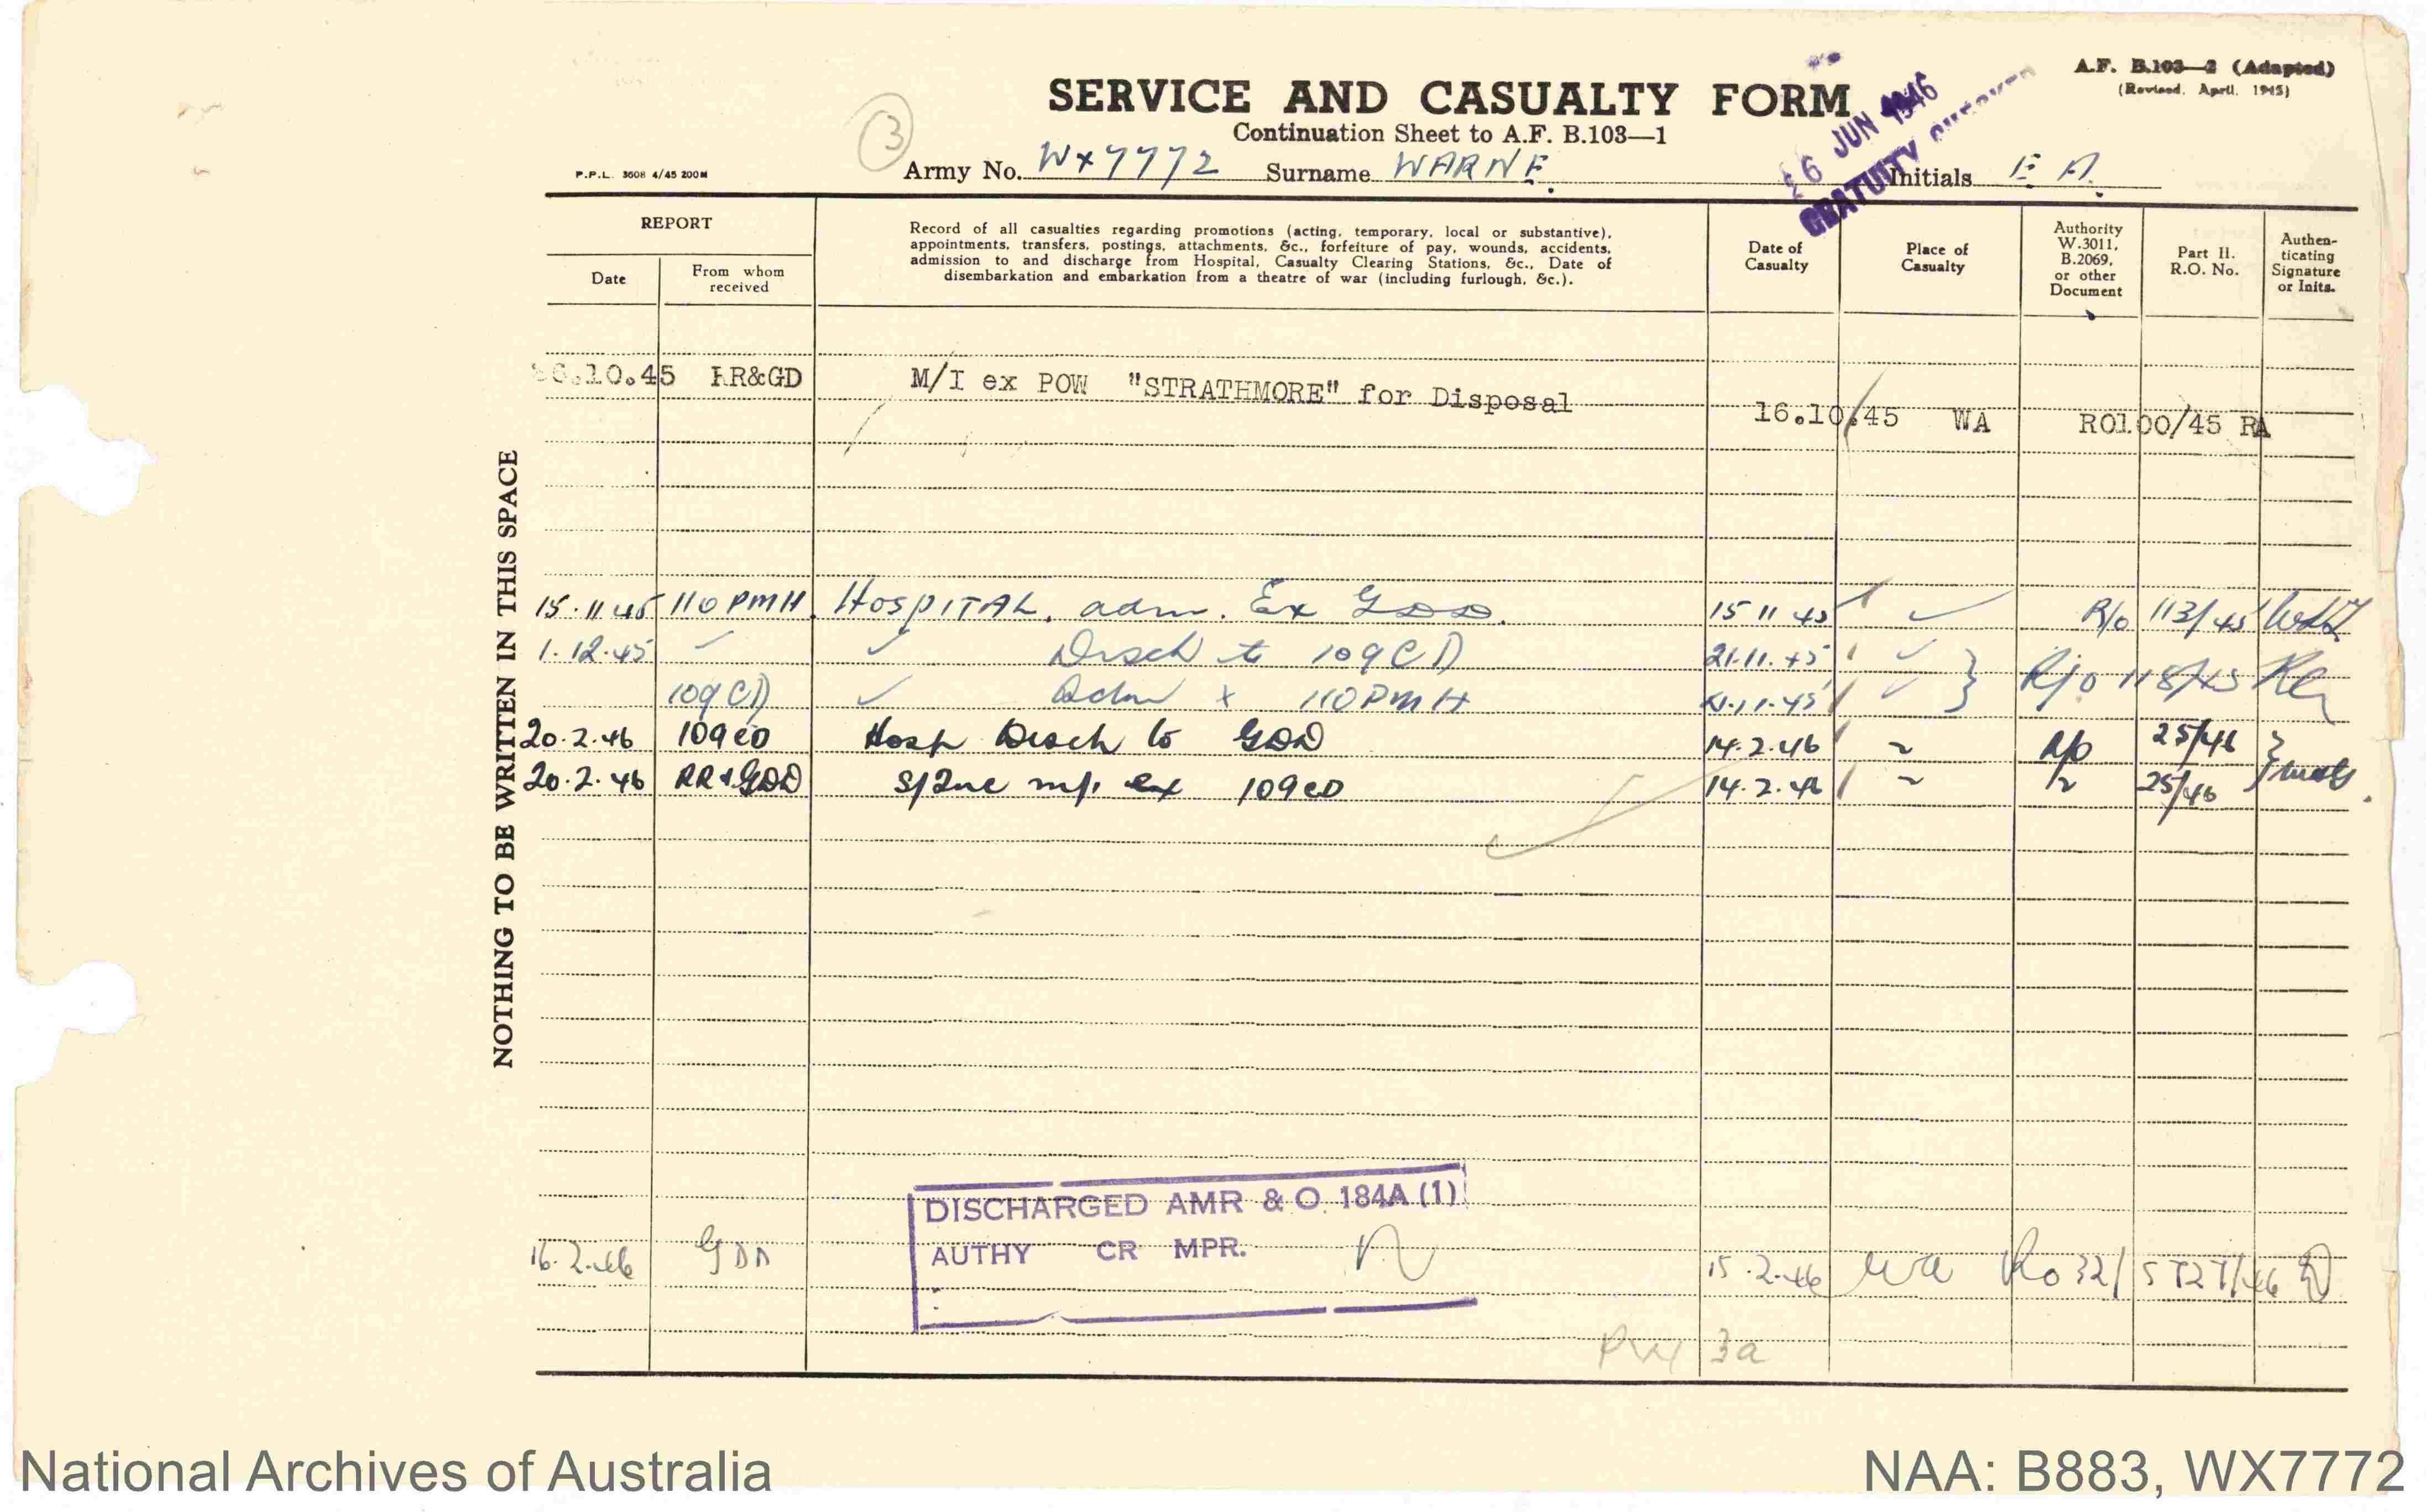 A.F. B.103—2 (Adapted)
(Revised. April. 1945)
SERVICE AND CASUALTY FORM
Continuation Sheet to A.F. B.103—1
3
26 JUN 1946
GRATUITY CHECKED
P.P.L. 3608 4/45 200M
Army No. WX7772 Surname WARNE. Initials E A.
REPORT
Date
From whom received
Record of all casualties regarding promotions (acting, temporary, local or substantive),
appointments, transfers, postings, attachments, &c., forfeiture of pay, wounds, accidents,
admission to and discharge from Hospital, Casualty Clearing Stations, &c., Date of
disembarkation and embarkation from a theatre of war (including furlough, &c.).
Date of Casualty
Place of Casualty
Authority W.3011, B.2069, or other Document
Part II. R.O. No.
Authen-ticating Signature or Inits.
NOTHING TO BE WRITTEN IN THIS SPACE
.10.45 RR&GD M/I ex POW "STRATHMORE" for Disposal 16.10.45 WA RO100/45 RA
15.11.45 110 PMH. HOSPITAL. adm. Ex GDD. 15 11 45 R/o 113/45
1.12.45 Disch to 109 CD 21.11.45
109 CD Adm x 110 PMH 21.11.45 R/o 118/45
20.2.46 109 CD Hosp Disch to GDD 14.2.46 R/o 25/46
20.2.46 RR&GDD m/i ex 109 CD 14.2.46 25/46
DISCHARGED AMR & O. 184A (1)
AUTHY CR MPR.
16.2.46 GDD 15.2.46 WA Ro 32/
3a
National Archives of Australia
NAA: B883, WX7772